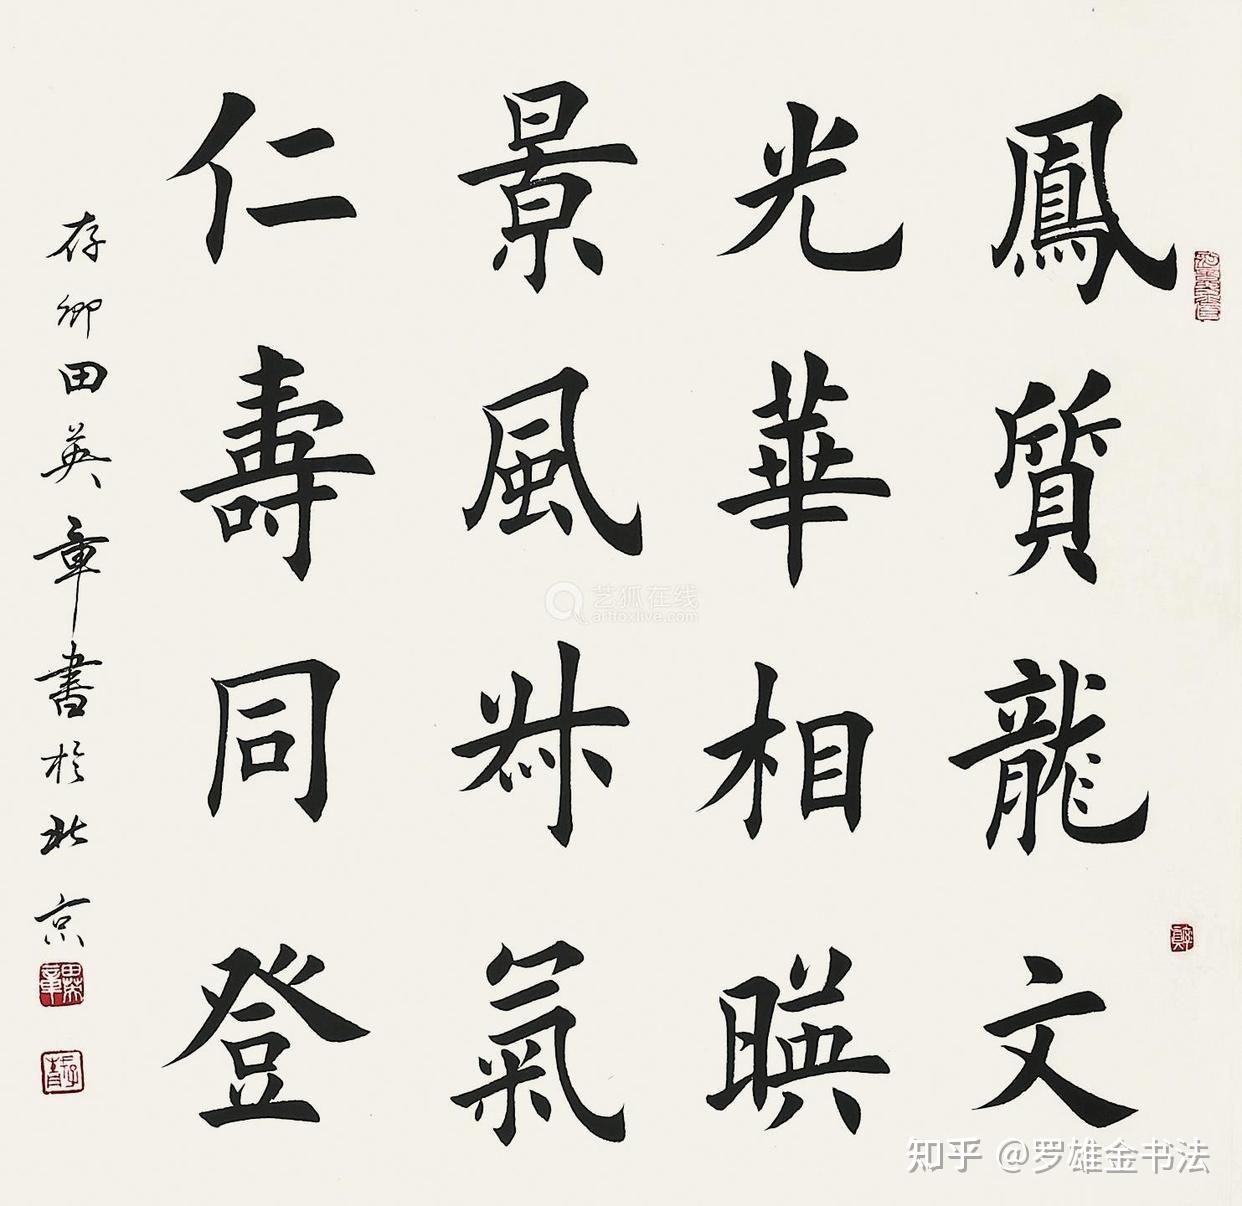 鳳質龍文
光華相暎
景風氣
仁壽同登
存卿田英章書於北京
艺狐在线
artfoxlive.com
知乎 @罗雄金书法